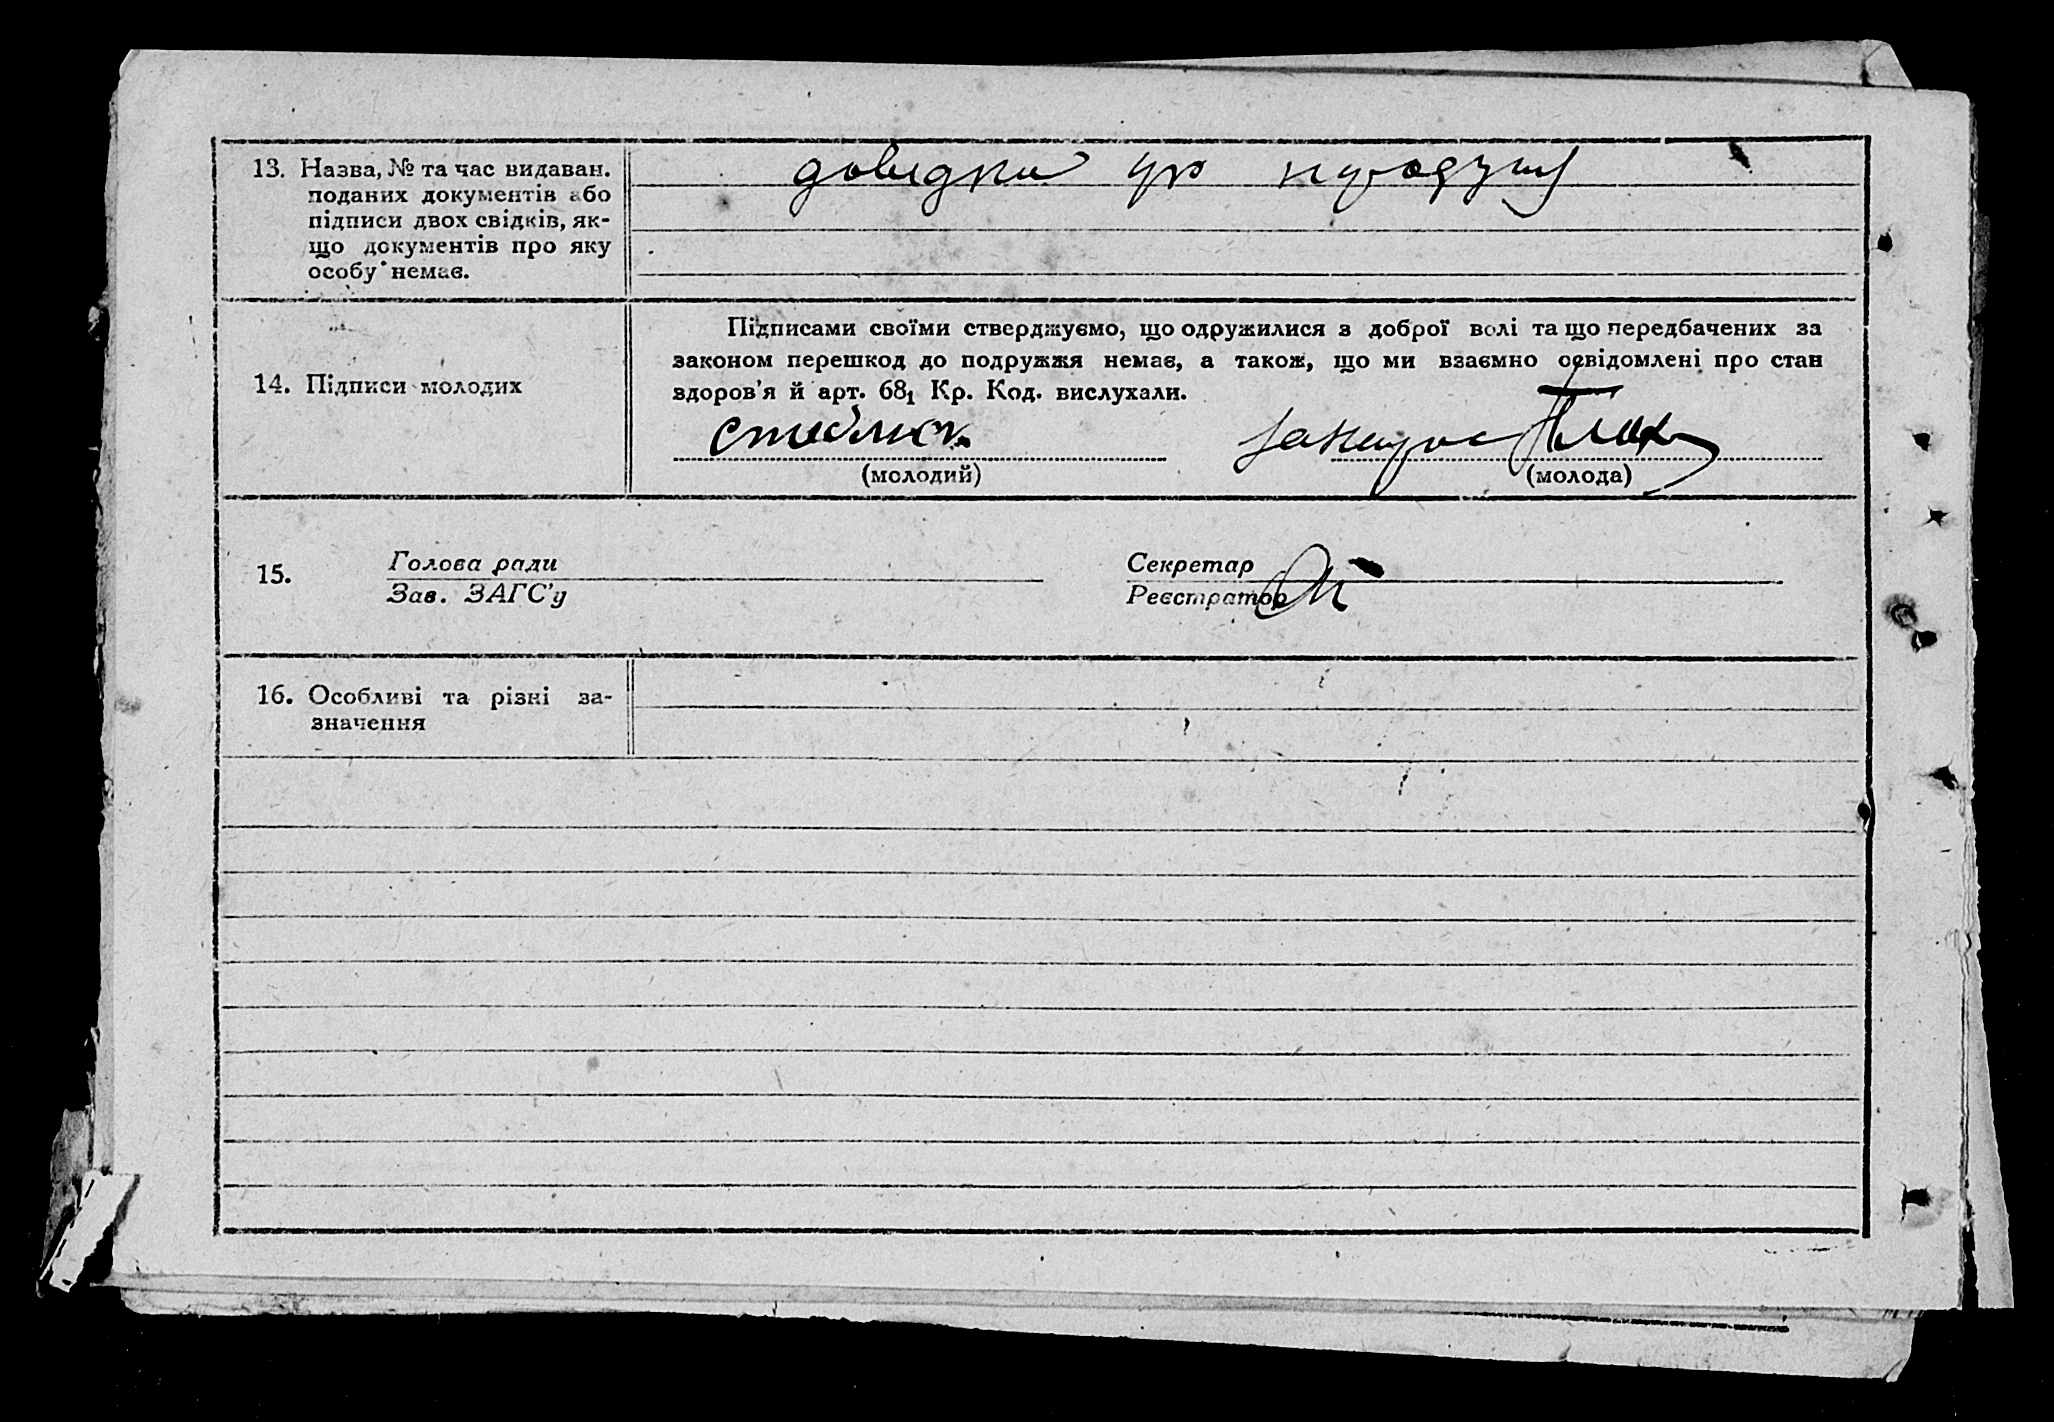 13. Назва, № та час видаван.
поданих документів або
підписи двох свідків, як-
що документів про яку
особу немає.
довідки про
Підписами своїми стверджуємо, що одружилися з доброї волі та що передбачених за
законом перешкод до подружжя немає, а також, що ми взаємно освідомлені про стан
здоров'я й арт. 68₁ Кр. Код. вислухали.
14. Підписи молодих
(молодий)
(молода)
15.
Голова ради
Зав. ЗАГС'у
Секретар
Реєстратор
16. Особливі та різні за-
значення